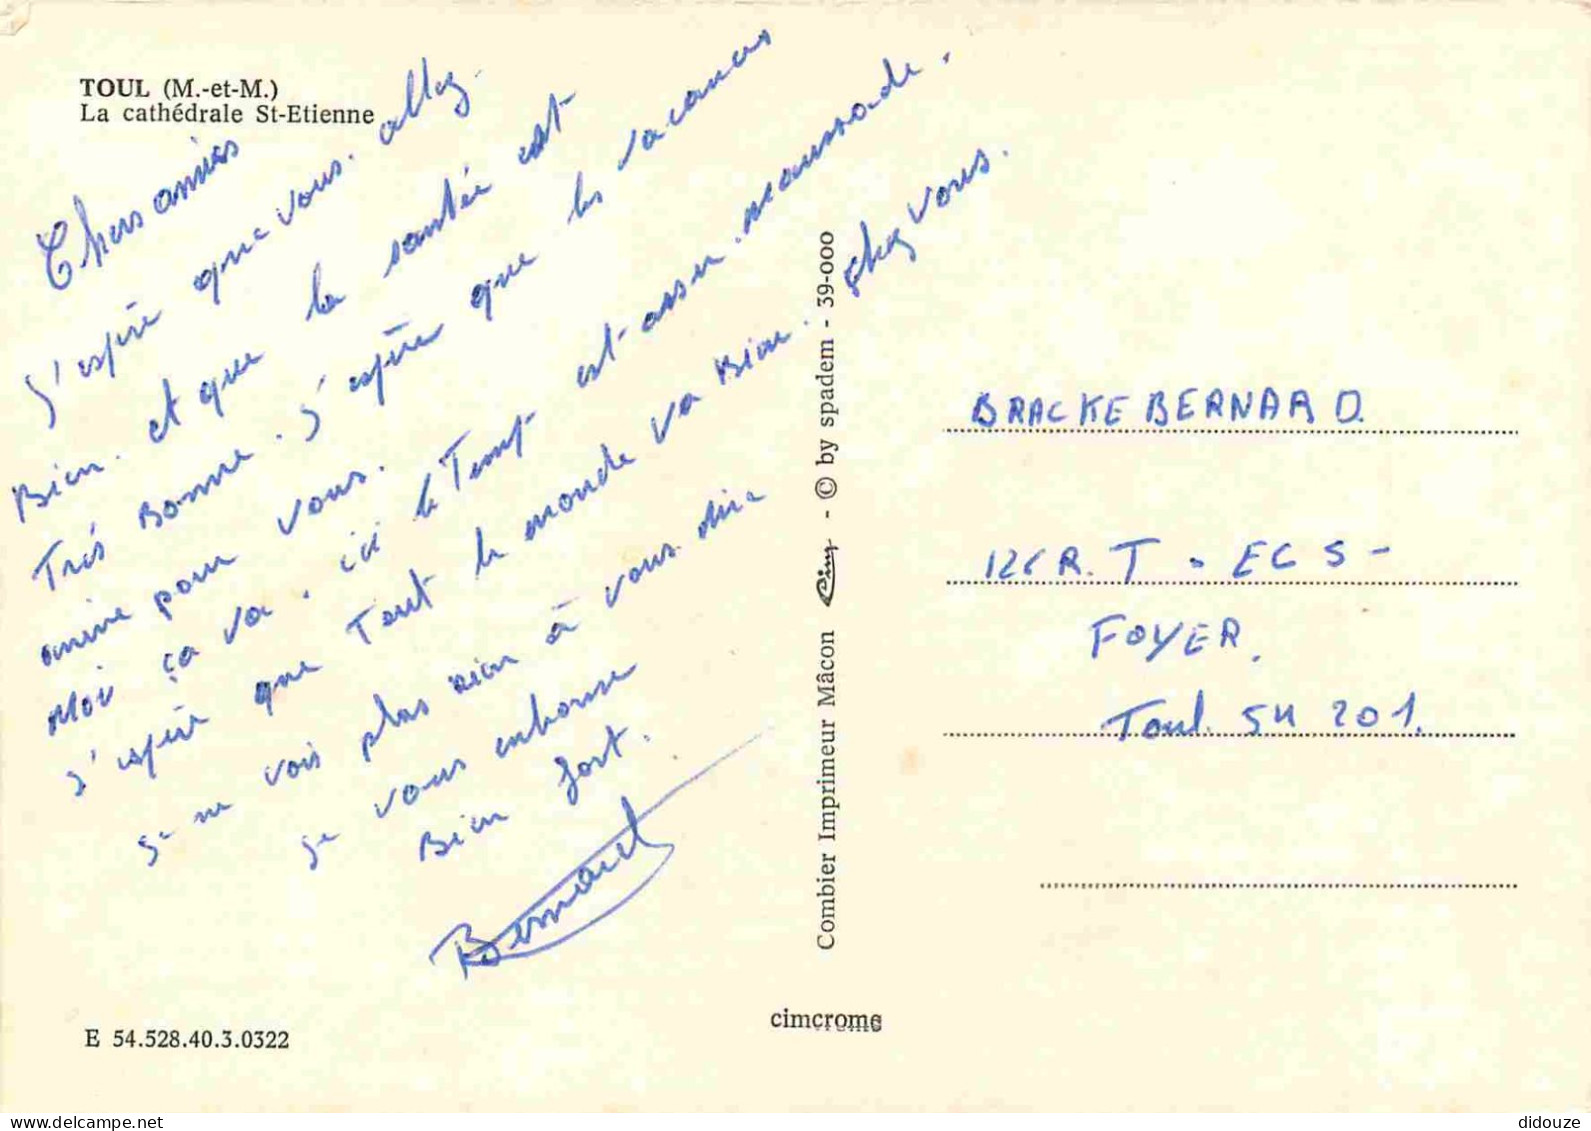 TOUL (M.-et-M.)
La cathédrale St-Etienne
Chers amies
J'espère que vous. allez.
Bien. et que la santée est
Trés Bonne. J'espère que les vacances
arrive pour vous.
Moi ça va. ici le Temp est assez maussade.
J'espère que Tout le monde va Bien. chez vous.
Je ne vois plus rien à vous dire
Je vous embrasse
Bien fort.
Bernard
E 54.528.40.3.0322
Combier Imprimeur Mâcon Cim - © by spadem - 39-000
cimcrome
BRACKE BERNARD.
R. T - ECS -
FOYER.
Toul. 201.
delcampe.net
didouze